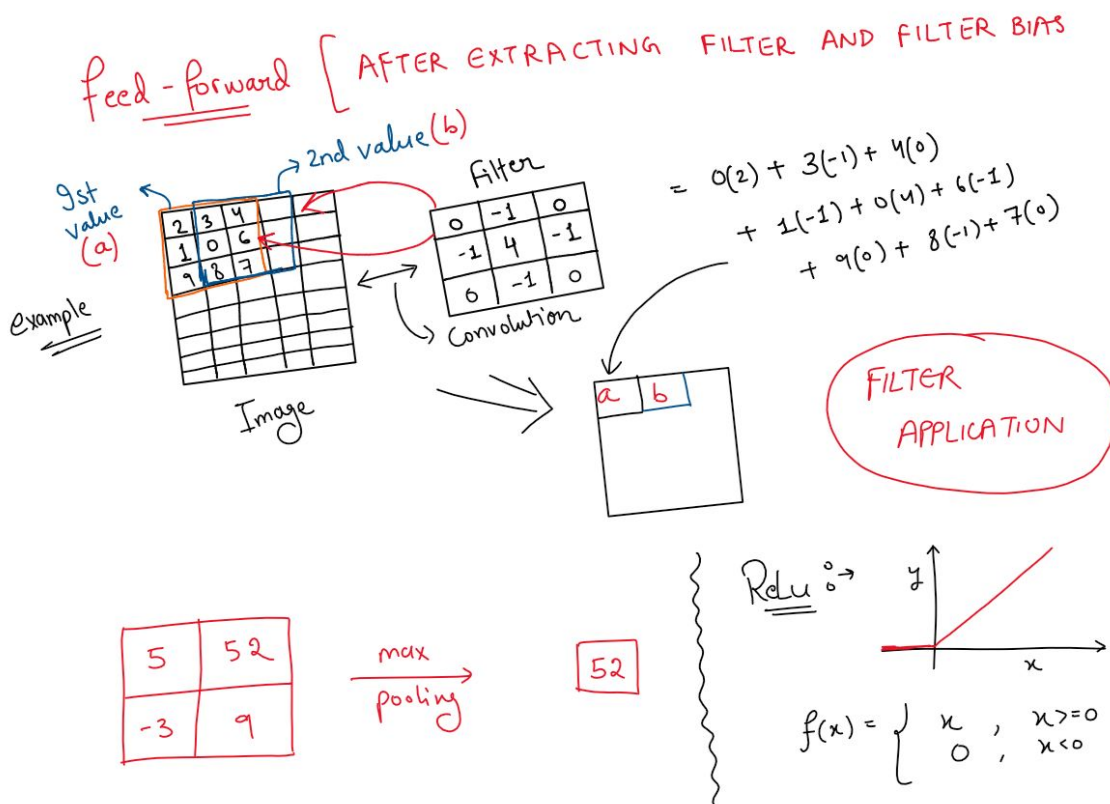 feed-forward [ AFTER EXTRACTING FILTER AND FILTER BIAS
2nd value (b)
Ist
value
(a)
2 3 4
1 0 6
9 8 7
example
Image
Filter
0 -1 0
-1 4 -1
0 -1 0
Convolution
= 0(2) + 3(-1) + 4(0)
+ 1(-1) + 0(4) + 6(-1)
+ 9(0) + 8(-1) + 7(0)
a b
FILTER
APPLICATION
5 52
-3 9
max
pooling
52
ReLu :→
y
x
f(x) = { x , x>=0
0 , x<0